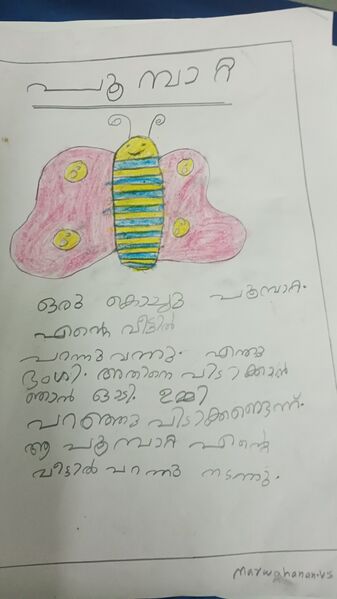 പൂമ്പാറ്റ
ഒരു കൊച്ചു പൂമ്പാറ്റ.
എന്റെ വീട്ടിൽ
പറന്നു വന്നു. എന്തു
ഭംഗി. അതിനെ പിടിക്കാൻ
ഞാൻ ഓടി. ഉമ്മി
പറഞ്ഞു പിടിക്കണ്ടെന്ന്.
ആ പൂമ്പാറ്റ എന്റെ
വീട്ടിൽ പറന്നു നടന്നു.